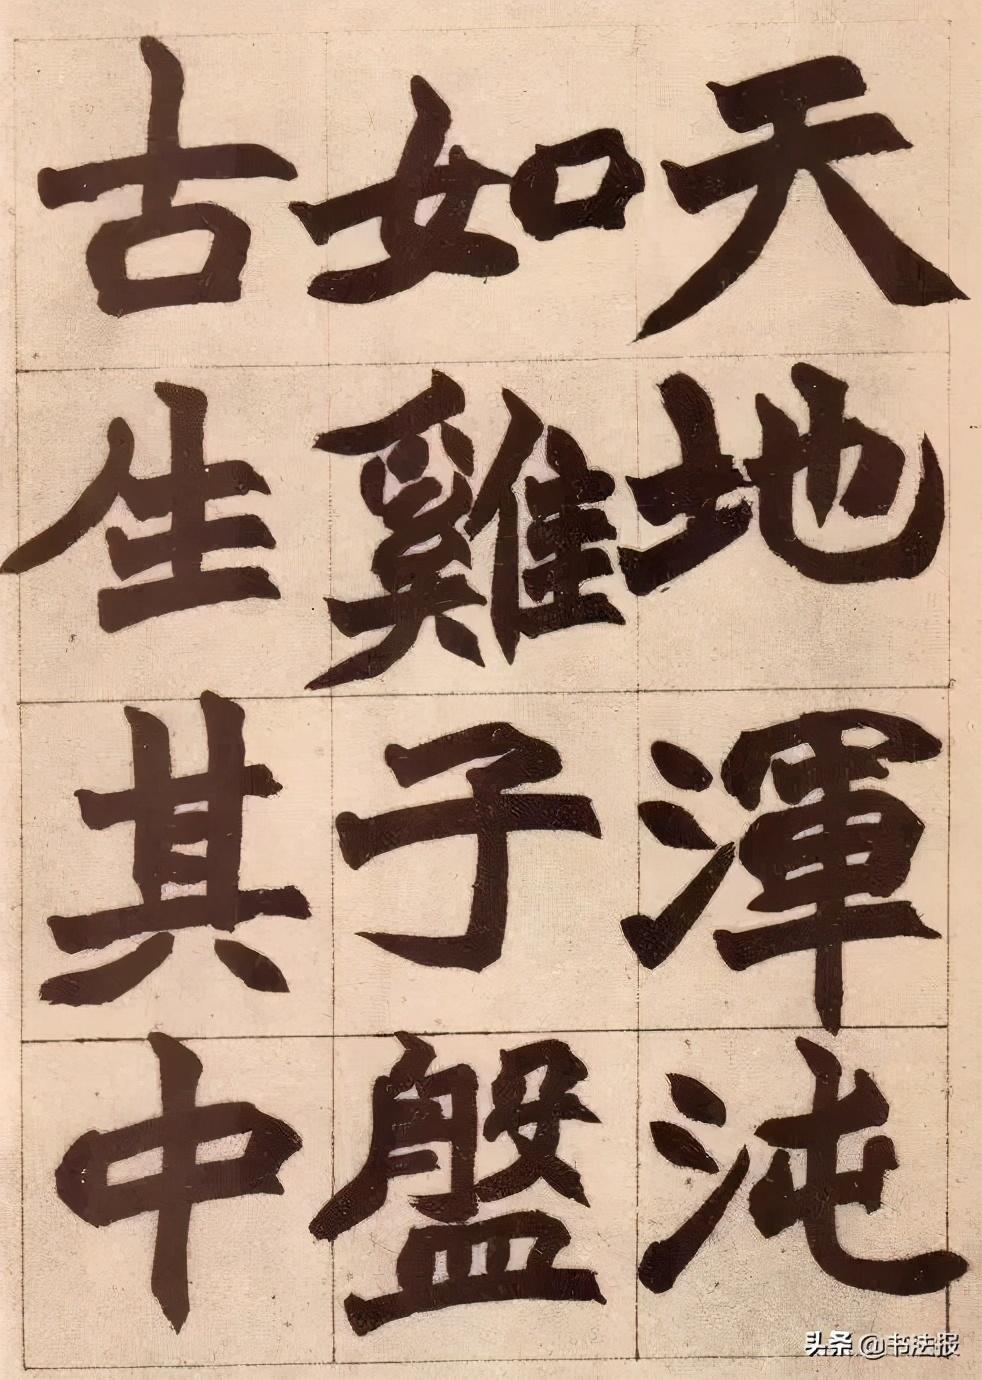 天地渾沌
如雞子盤
古生其中
头条 @书法报